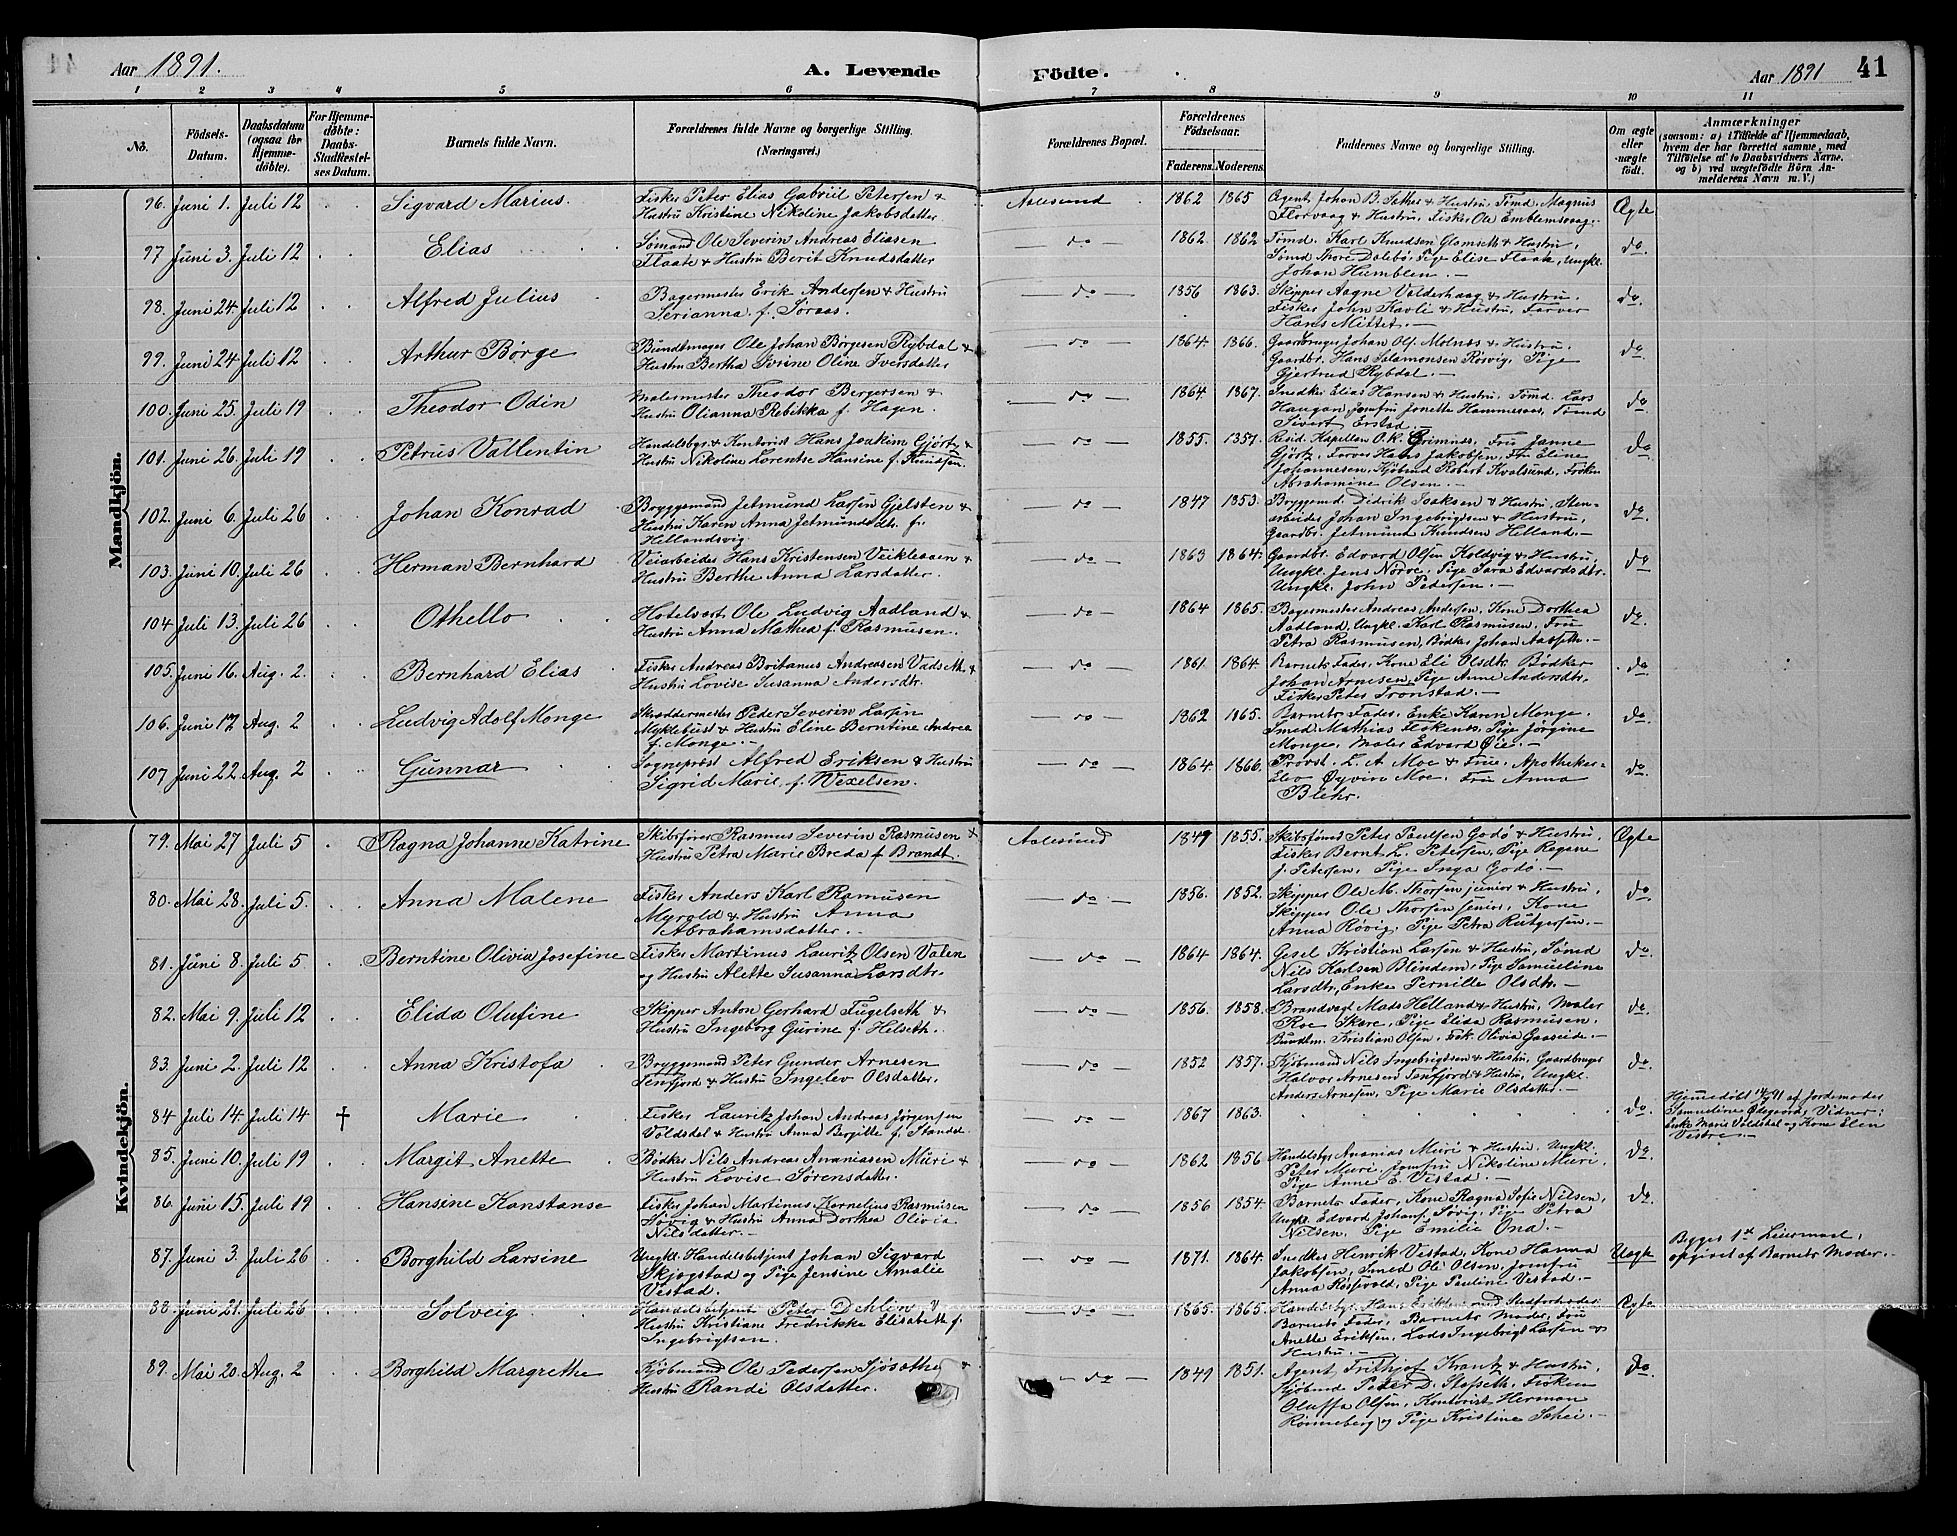 Aar 1891. A. Levende Födte. Aar 1891 41
1 2 3 4 5 6 7 8 9 10 11
No.
Födsels-Datum.
Daabsdatum (ogsaa for Hjemme-döbte).
For Hjemme-döbte: Daabs-Stadfæstel-ses Datum.
Barnets fulde Navn.
Forældrenes fulde Navne og borgerlige Stilling. (Næringsvei.)
Forældrenes Bopæl.
Forældrenes Födselsaar.
Faderens. Moderens.
Faddernes Navne og borgerlige Stilling.
Om ægte eller uægte födt.
Anmærkninger
(saasom: a) i Tilfælde af Hjemmedaab,
hvem der har forrettet samme, med
Tilföielse af to Daabsvidners Navne,
og b) ved uægtefödte Börn An-
melderens Navn m. V.)
Mandkjön.
96. Juni 1. Juli 12 Sigvard Marius. Fisker Peter Elias Gabriel Petersen & Aalesund 1862 1865 Agent Johan B. Sether & Hustru, Tømd. Magnus Ægte
Hustru Kristine Nikoline Jakobsdatter Florvaag & Hustru, Fisker Ole Emblemsvaag.
97 Juni 3. Juli 12 Elias Sømand Ole Severin Andreas Eliasen do 1862 1862 Tømd. Karl Knudsen Glomseth & Hustru, do.
Flaate & Hustru Berit Knudsdatter Sømd Thore Dalebø, Pige Elise Flaate, Ungkl.
Johan Humblen.
98. Juni 24. Juli 12 Alfred Julius Bagermester Erik Andersen & Hustru do 1856 1863. Skipper Aagne Valderhaug & Hustru, do.
Serianna f. Søraas. Fisker John Kavli & Hustru, Farver
Hans Mittet.
99. Juni 24 Juli 12 Arthur Børge Bundtmager Ole Johan Børgesen Rybdal & do 1864 1866. Gaardbruger Johan Ols. Molnes & Hustru, do
Hustru Bertha Serine Oline Iversdatter Gaardbr. Hans Salamonsen Røsvig, Pige
Gjertrud Rybdal.
100. Juni 25. Juli 19 Theodor Odin Malermester Theodor Bergersen & do 1864 1867. Snedker Elias Hansen & Hustru, Tømd. Lars do
Hustru Olianna Rebekka f. Hagen. Haugan, Jomfru Jonette Hammeraas, Tømd
Sivert Erstad.
101. Juni 26 Juli 19 Petrus Vallentin Handelsbgr. & Kontorist Hans Joakim Gjørtz & do 1855. 1857. Resid. Kapellan O. K. Grimnes, Fru Janne do
Hustru Nikoline Lorentse Hansine f. Knudsen. Gjørtz, Farver Hans Jakobsen, Fru Eline
Johannesen, Kjøbmd Robert Kvalsund, Frøken
Abrahamine Olsen.
102. Juni 6. Juli 26 Johan Konrad Bryggemand Jetmund Larsen Gjelsten & do 1847 1853. Bryggemd. Didrik Isaksen & Hustru, Sten- do.
Hustru Karen Anna Jetmundsdtr. fr. arbeider Johan Ingebrigtsen & Hustru,
Hellandsvig. Gaardbr. Jetmund Knudsen Helland.
103. Juni 10. Juli 26 Herman Bernhard Veiarbeider Hans Kristensen Veiklesaen & do 1863 1864. Gaardbr. Edvard Olsen Koldvig & Hustru, do
Hustru Berthe Anna Larsdatter. Ungkl. Jens Nørve, Pige Sara Edvardsdtr.
Ungkl. John Pedersen.
104 Juli 13. Juli 26 Othello Hotelvært Ole Ludvig Aadland & do 1864 1865. Bagermester Andreas Andersen, Kone Dorthea do.
Hustru Anna Mathea f. Rasmusen. Aadland, Ungkl. Karl Rasmusen, Fru
Petra Rasmusen, Bødker Johan Aarseth.
105. Juni 16. Aug. 2. Bernhard Elias Fisker Andreas Britanus Andreasen Vadseth & do 1861 1864. Barnets Fader, Kone Eli Olsdtr. Bødker do
Hustru Lovise Susanna Andersdtr. Johan Arnesen, Pige Anne Andersdtr,
Fisker Peter Tronstad.
106. Juni 17 Aug. 2 Ludvig Adolf Monge Skræddermester Peder Severin Larsen do 1862 1865. Barnets Fader, Enke Karen Monge, do.
Myklebust & Hustru Eline Berntine Andrea Smed. Mathias Fiskenes, Pige Jørgine
f. Monge. Monge, Maler Edvard Øie.
107 Juni 22. Aug. 2 Gunnar Sogneprest Alfred Eriksen & Hustru do 1864. 1866. Provst L. A Moe & Frue, Apotheker- do.
Sigrid Marie, f. Wexelsen. elev Øyvin Moe, Fru Anna
Blehr.
Kvindekjön.
79. Mai 27 Juli 5 Ragna Johanne Katrine Skibsfører Rasmus Severin Rasmusen & Aalesund 1849 1855. Skibstømd Peter Paulsen Godø & Hustru, Ægte
Hustru Petra Marie Breda f. Brandt. Fisker Bernt L. Petersen, Pige Regane
f. Petersen, Pige Inga Godø.
80. Mai 28. Juli 5. Anna Malene Fisker Anders Karl Ramusen do 1856. 1852. Skipper Ole M. Thorsen junior & Hustru, do
Myrold & Hustru Anna Skipper Ole Thorsen senior, Kone
Abrahamsdatter. Anna Røvig, Pige Petra Rutgersen.
81. Juni 8. Juli 5. Berntine Olivia Josefine Fisker Martinus Lauritz Olsen Valen do 1864 1864. Gesel Kristian Larsen & Hustru, Sømd do.
og Hustru Alette Susanna Larsdtr. Nils Karlsen Blindem, Pige Samueline
Larsdtr, Enke Pernille Olsdtr.
82. Mai 9. Juli 12 Elida Olufine Skipper Anton Gerhard Fugelseth & do 1856. 1858. Brandvagt Mads Helland & Hustru, Maler do
Hustru Ingeborg Gurine f. Helseth. Roe Skare, Pige Elida Rasmusen.
Bundtm. Kristian Olsen, Frk. Olivia Gaaseide.
83. Juni 2. Juli 12 Anna Kristofa Bryggemand Peter Gunder Arnesen do 1852 1857. Kjøbmand Nils Ingebrigtsen & Hustru, Gaardbruger do
Tenfjord & Hustru Ingelev Olsdatter. Halvor Arnesen Tenfjord & Hustru, Ungkl.
Anders Arnesen, Pige Marie Olsdatter.
84 Juli 14. Juli 14 † Marie Fisker Lauritz Johan Andreas Jørgensen do 1867 1863. do. Hjemmedøbt 14/7 91 af Jordemoder
Voldsdal & Hustru Anna Bergitte f. Standal Samueline Ødegaard, Vidner:
Enke Marie Voldsdal og Kone Elen
Vestre.
85. Juni 10. Juli 19 Margit Anette Bødker Nils Andreas Ananiassen Muri & do 1862 1856 Handelsbgr Ananias Muri & Hustru, Ungkl. do.
Hustru Lovise Sørensdatter. Peter Muri, Jomfru Nikoline Muri,
Pige Anne E. Vestad.
86. Juni 15. Juli 19 Hansine Konstanse Fisker Johan Martinus Kornelius Rasmusen do 1856 1854. Barnets Fader, Kone Ragna Sofie Nilsen, do.
Søvig & Hustru Anna Dorthea Olivia Ungkl. Edvard Johans. Søvig, Pige Petra
Nilsdatter. Nilsen, Pige Emilie Ona.
87. Juni 3. Juli 26 Borghild Larsine Ungkl. Handelsbetjent Johan Sigvard do 1871. 1864. Snedker Henrik Vestad, Kone Hanna Uægte Begges 1st Leiermaal,
Skjogstad og Pige Jensine Amalie Jakobsen, Smed Ole Olsen, Jomfru opgivet af Barnets Moder.
Vestad. Anna Røsvold, Pige Pauline Vestad.
88. Juni 21. Juli 26 Solveig. Handelsbetjent Peter Dehlin & do 1865. 1865. Handelsbgr. Hans Eriksen med Stedfortræder Ægte
Hustru Kristiane Fredrikke Elisabeth f. Barnets Fader, Barnets Moder, Fru
Ingebrigtsen. Anette Eriksen, Lods Ingebrigt Larsen &
Hustru.
89. Mai 20. Aug. 2 Borghild Margrethe Kjøbmand Ole Pedersen Sjøsæther & do 1849 1851. Agent Frithjof Krantz & Hustru, do
Hustru Randi Olsdatter. Kjøbmd Peter D. Stafseth, Frøken
Oluffa Olsen, Kontorist Herman
Rønneberg og Pige Kristine Schei.